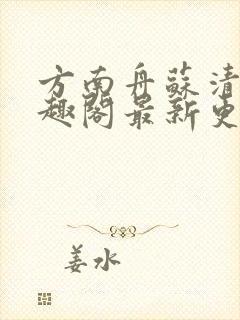 方南舟蘇清
趣閣最新更
姜水